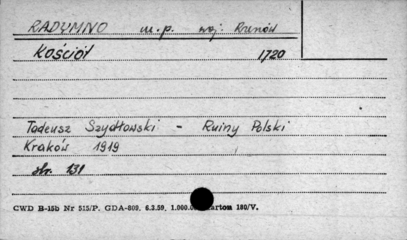 RADYMNO m.p. woj. Rzeszów
Kościół 1720
Tadeusz Szydłowski - Ruiny Polski
Kraków 1919
str. 131
CWD B-15b Nr 515/P. GDA-809. 6.3.59. 1.000.0 karton 180/V.